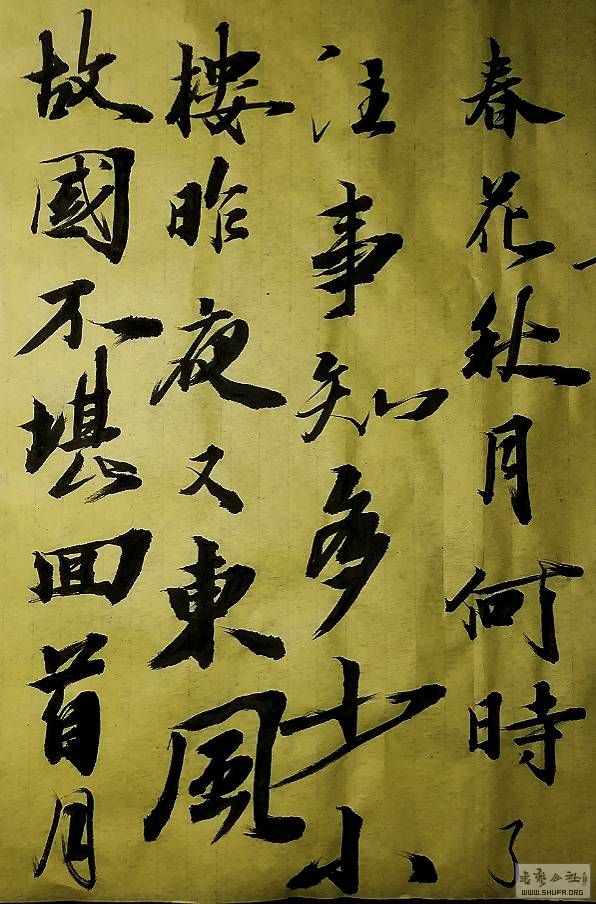 春花秋月何時了
往事知多少小
樓昨夜又東風
故國不堪回首月
WWW.SHUFA.ORG